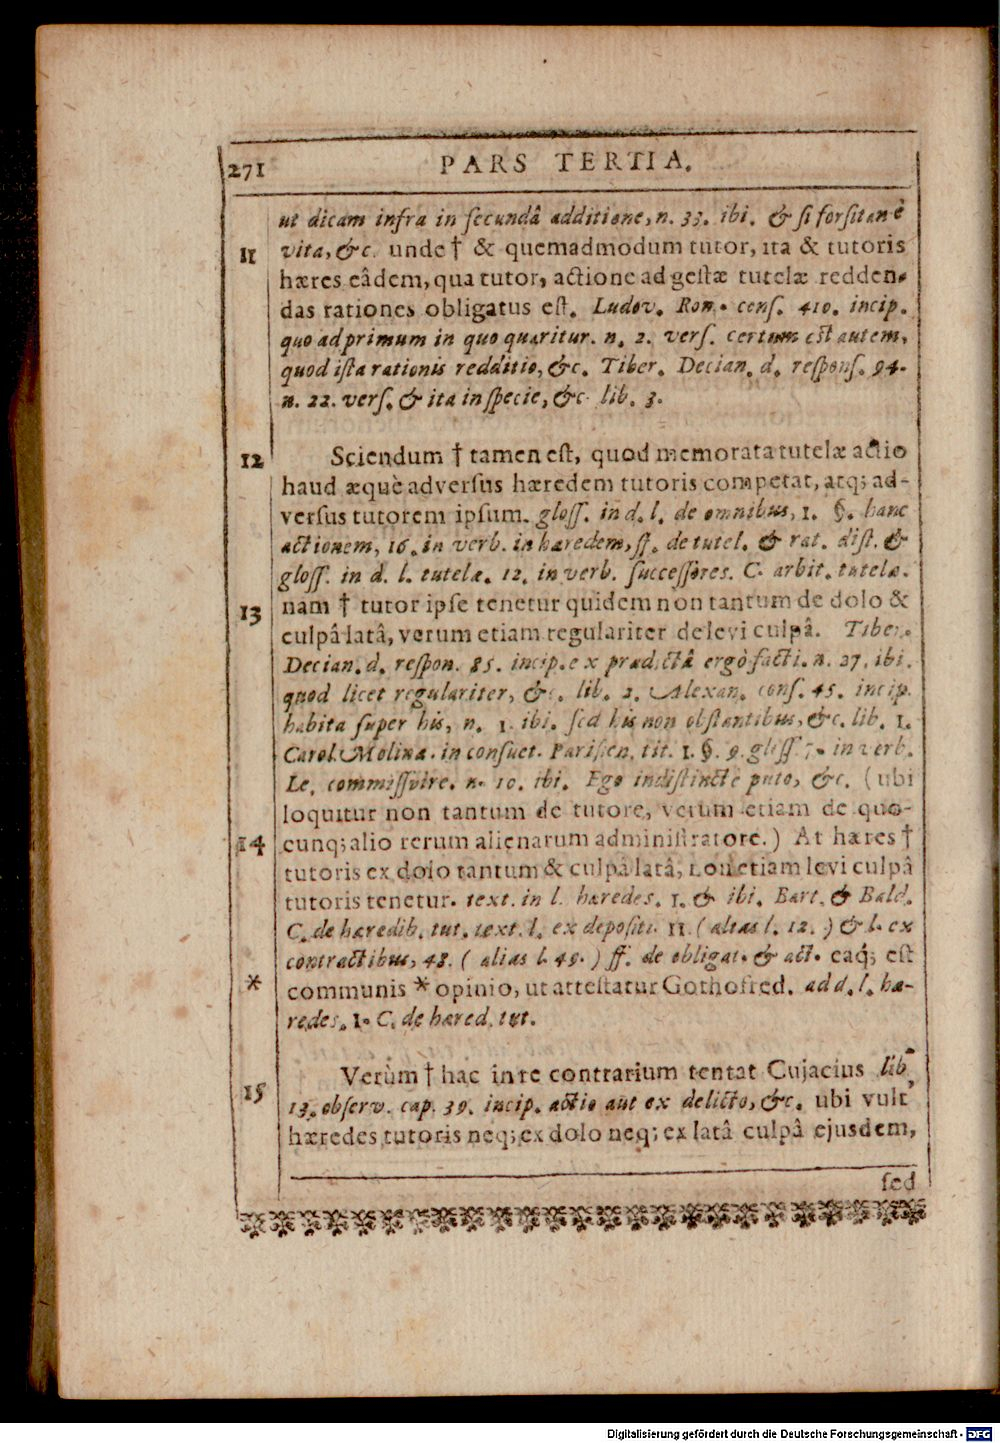 271 PARS TERTIA.
ut dicam infra in secundâ additione, n. 33. ibi. & si forsitan è
11 vita, &c. unde † & quemadmodum tutor, ita & tutoris
hæres eâdem, qua tutor, actione ad gestæ tutelæ redden-
das rationes obligatus est. Ludov. Rom. cens. 410. incip.
quo ad primum in quo quæritur. n. 2. vers. certum est autem,
quod ista rationis redditio, &c. Tiber. Decian. d. respons. 94.
n. 22. vers. & ita in specie, &c. lib. 3.
12 Sciendum † tamen est, quod memorata tutelæ actio
haud æquè adversus hæredem tutoris competat, atq; ad-
versus tutorem ipsum. gloss. in d. l. de omnibus, 1. §. hanc
actionem, 16. in verb. in hæredem, ff. de tutel. & rat. dist. &
gloss. in d. l. tutelæ. 12. in verb. successores. C. arbit. tutelæ.
13 nam † tutor ipse tenetur quidem non tantum de dolo &
culpâ latâ, verum etiam regulariter de levi culpâ. Tiber.
Decian. d. respon. 85. incip. ex prædictâ ergò facti. n. 27. ibi.
quod licet regulariter, &c. lib. 2. Alexan. cons. 45. incip.
habita super his, n. 1. ibi. sed his non obstantibus, &c. lib. 1.
Carol. Molina. in consuet. Parisien. tit. 1. §. 9. gloss. 7. in verb.
Le, commissoire. n. 10. ibi. Ego indistinctè puto, &c. (ubi
loquitur non tantum de tutore, verum etiam de quo-
14 cunq; alio rerum alienarum administratore.) At hæres †
tutoris ex dolo tantum & culpâ latâ, non etiam levi culpâ
tutoris tenetur. text. in l. hæredes. 1. & ibi. Bart. & Bald.
C. de hæredib. tut. text. l. ex depositi. 11. (alias l. 12.) & l. ex
contractibus, 48. (alias l. 49.) ff. de obligat. & act. eaq; est
* communis * opinio, ut attestatur Gothofred. ad d. l. hæ-
redes. 1. C. de hæred. tut.
15 Verùm † hac in re contrarium tentat Cujacius lib.
13. observ. cap. 39. incip. actio aut ex delicto, &c. ubi vult
hæredes tutoris neq; ex dolo neq; ex latâ culpâ ejusdem,
sed
Digitalisierung gefördert durch die Deutsche Forschungsgemeinschaft - DFG